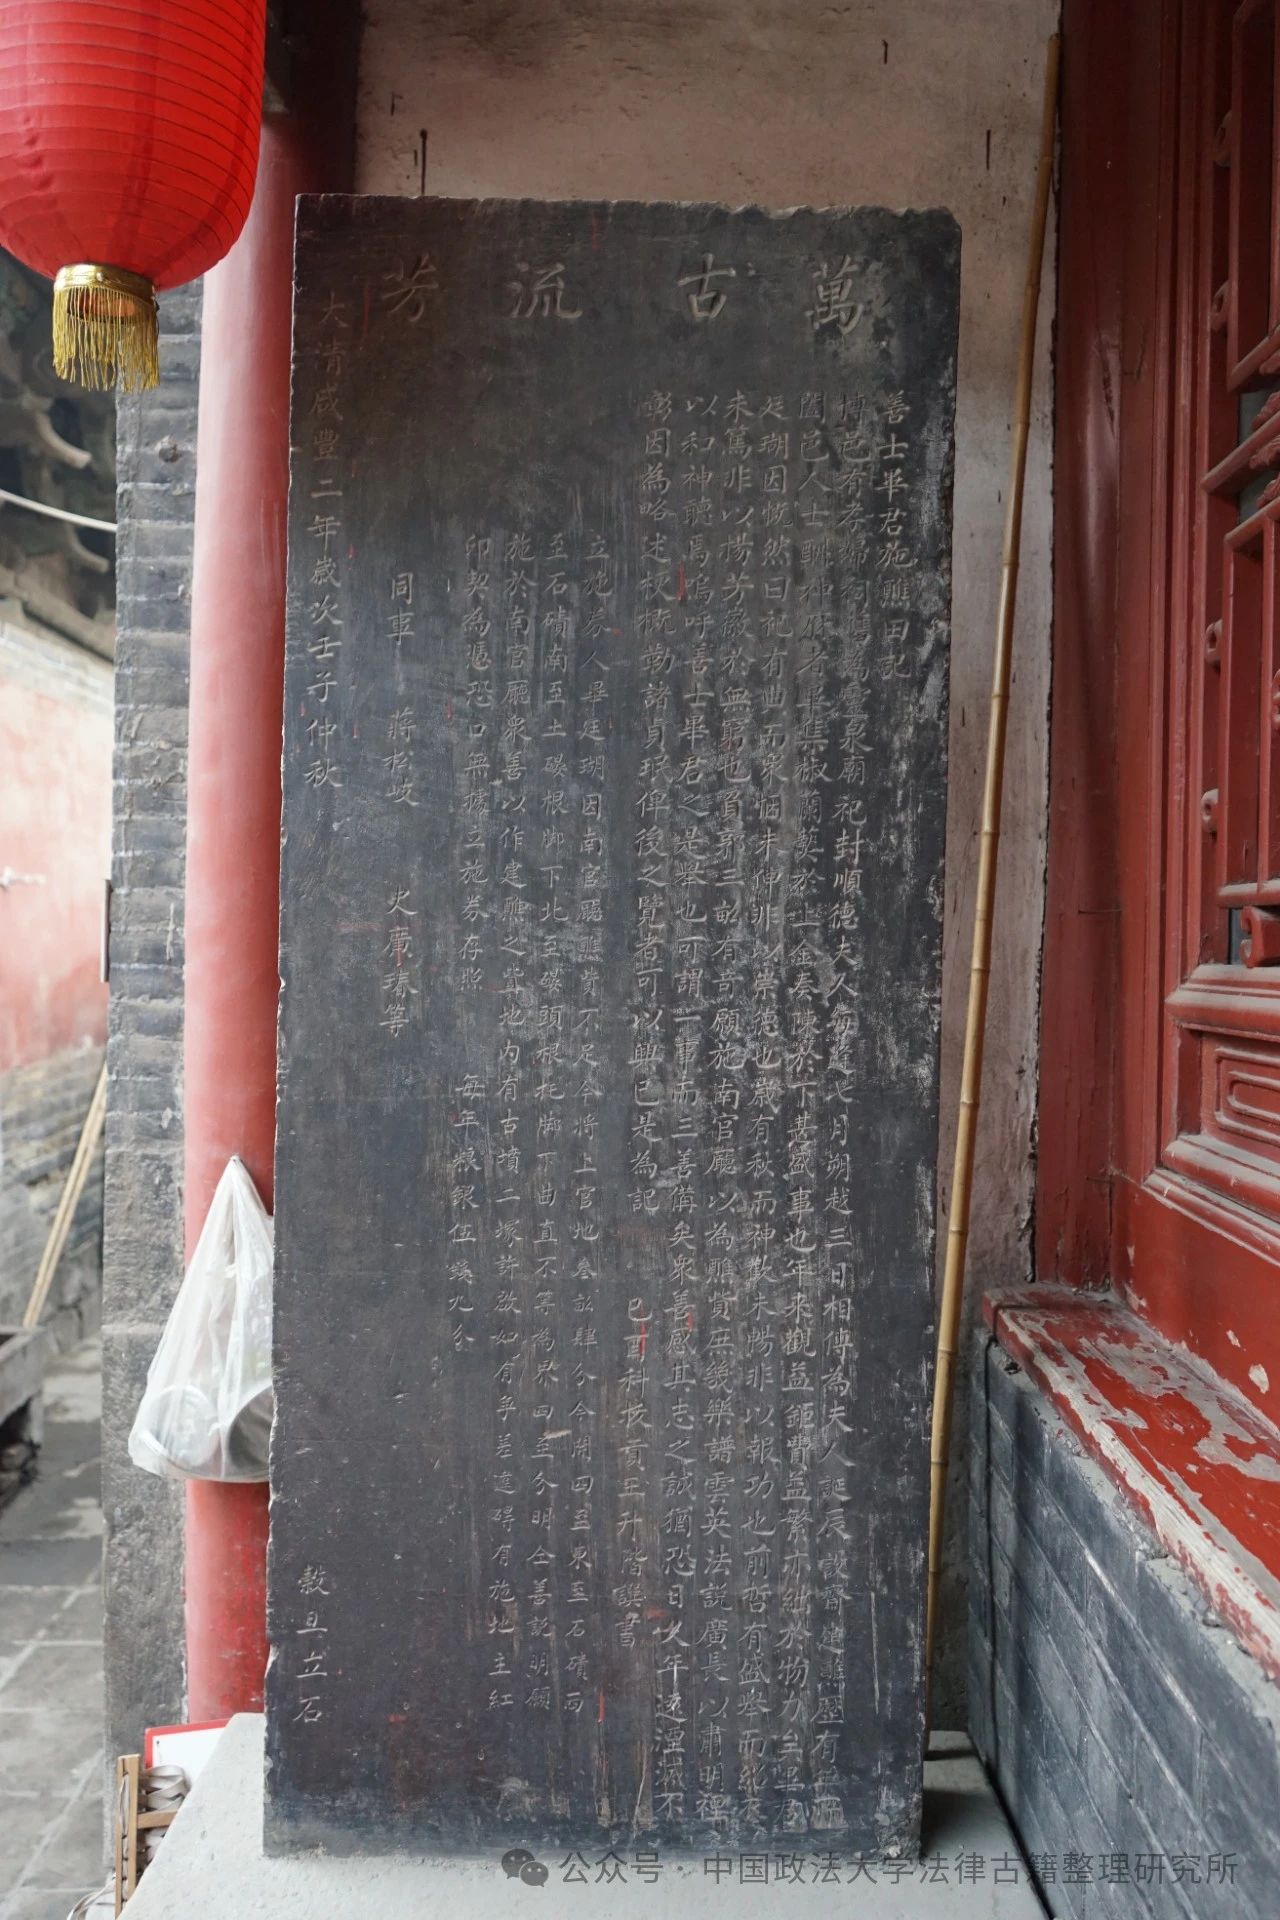 萬古流芳
善士畢君施醮田記
博邑有孝婦祠舊為靈泉廟祀封順德夫人每逢七月朔越三日相傳為夫人誕辰設齋建醮歷有年所
闔邑人士酬神府者畢集椒蘭藝於上金奏陳於下甚盛事也年來觀益鉅費益繁亦絀於物力矣畢君
廷瑚因慨然曰祀有典而衆悃未伸非以崇德也歲有秋而神歡未暢非以報功也前哲有盛舉而紹衣
未篤非以楊芳徽於無窮也負郭三畝有奇願施南官廳以為醮貲庶幾樂譜雲英法説廣長以肅明禋
以和神聽焉嗚呼善士畢君之是舉也可謂一事而三善備矣衆善感其志之誠猶恐日久年遠湮沒不
彰因為略述梗概勒諸貞珉俾後之覽者可以興已是為記
己酉科拔貢王升階譔書
立施券人畢廷瑚因南官廳醮貲不足今將上官地叁畝肆分今開四至東至石磧西
至石磧南至土磢根脚下北至磢頭根托脚下曲直不等為界四至分明仝善説明願
施於南官廳衆善以作建醮之貲地内有古墳二塚許啟如有爭差違碍有施地主紅
印契為憑恐口無據立施券存照 每年粮銀伍錢九分
同事 蔣松岐 史廣瑧等
大清咸豐二年歲次壬子仲秋 穀旦立石
公众号·中国政法大学法律古籍整理研究所